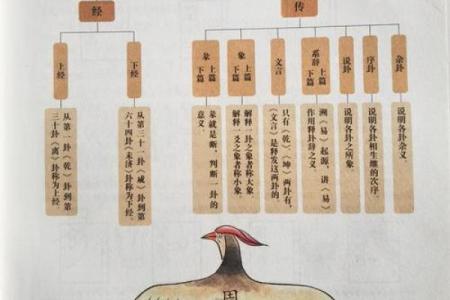 经
传
上经
下经
彖 上篇
下篇
象 上篇
下篇
文言
系辞 上篇
下篇
说卦
序卦
杂卦
从第一卦《乾》卦到第
三十卦《离》卦称为上经。
从第三十一卦《咸》卦到第
六十四卦《未济》卦称为下经。
彖就是断，判断一卦的
意义。
解释一卦之象者称大象，
解释一爻之象者称小象。
只有《乾》、《坤》两卦有，
《文言》是释发这两卦的。
溯《易》起源，讲《易》
作用释卦辞之义。
说明各卦之所象。
说明各卦相生继的次序。
说明各卦杂义。
周